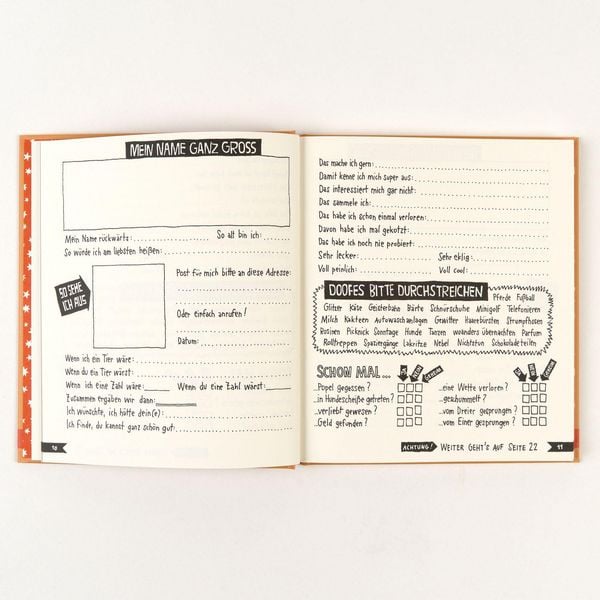 MEIN NAME GANZ GROSS
Mein Name rückwärts:
So alt bin ich:
So würde ich am liebsten heißen:
SO SEHE
ICH AUS
Post für mich bitte an diese Adresse:
Oder einfach anrufen!
Datum:
Wenn ich ein Tier wäre:
Wenn du ein Tier wärst:
Wenn ich eine Zahl wäre: Wenn du eine Zahl wärst:
Zusammen ergäben wir dann:
Ich wünschte, ich hätte dein(e):
Ich finde, du kannst ganz schön gut:
10
Das mache ich gern:
Damit kenne ich mich super aus:
Das interessiert mich gar nicht:
Das sammele ich:
Das habe ich schon einmal verloren:
Davon habe ich mal gekotzt:
Das habe ich noch nie probiert:
Sehr lecker: Sehr eklig:
Voll peinlich: Voll cool:
DOOFES BITTE DURCHSTREICHEN Pferde Fußball
Glitzer Käse Geisterbahn Bärte Schnürschuhe Minigolf Telefonieren
Milch Kakteen Autowaschanlagen Gewitter Haarebürsten Strumpfhosen
Rosinen Picknick Sonntage Hunde Tanzen woanders übernachten Parfum
Rolltreppen Spaziergänge Lakritze Nebel Nichtstun Schokoladeneis
SCHON MAL...
...Popel gegessen?
...in Hundescheiße getreten?
...verliebt gewesen?
...Geld gefunden?
...eine Wette verloren?
...geschummelt?
...vom Dreier gesprungen?
...vom Einer gesprungen?
ACHTUNG! WEITER GEHT'S AUF SEITE 22
11